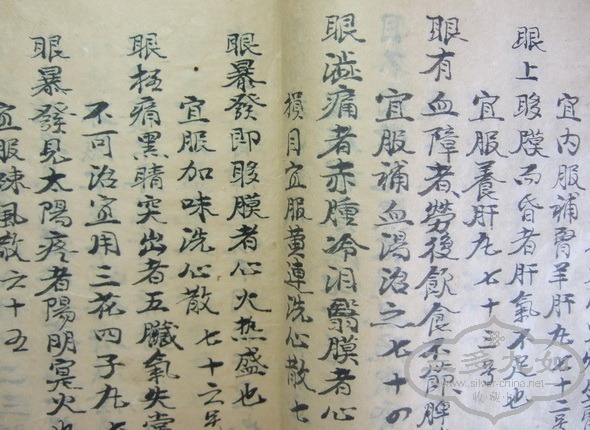 宜內服補腎羊肝丸七十二号
眼上瞖膜而昏者肝氣不足也
宜服養肝丸七十三号
眼有血障者勞後飲食不節脾
宜服補血湯治之七十四
眼澁痛者赤腫冷泪瞖膜者心
損目宜服黄連洗心散七
眼暴發即瞖膜者心火热盛也
宜服加味洗心散七十六号
眼極痛黑睛突出者五臟氣失常
不可治宜用三花四子丸七
眼暴發見太陽疼者陽明冥火也
宜服疎風散六十五
www.silver-china.net
收藏